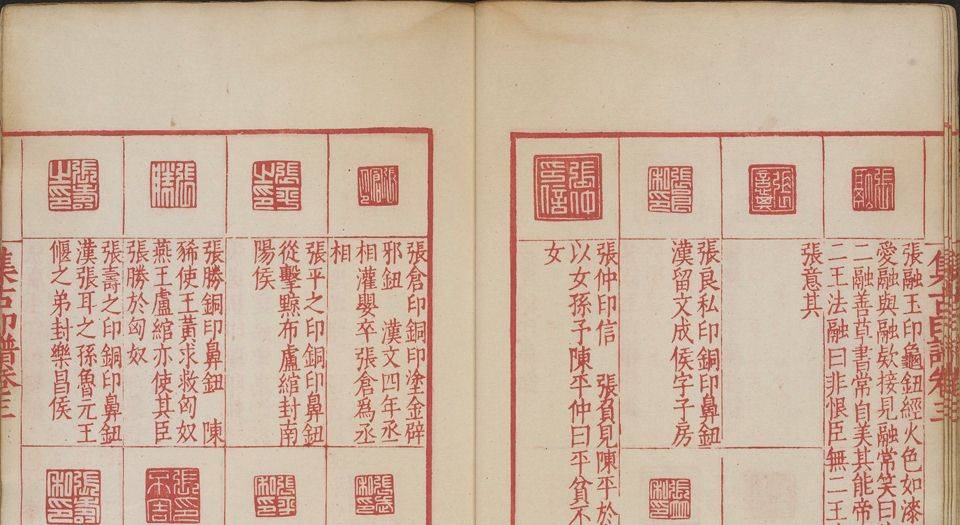 集古印譜卷三
張融
張融玉印龜鈕經火色如漆
愛融與融欵接見融常笑曰
二融善草書常自美其能帝
二王法融曰非恨臣無二王
張意其
張良私印
張良私印銅印鼻鈕
漢留文成侯字子房
張仲印信
張仲印信　張負見陳平於
以女孫予陳平仲曰平貧不
女
張倉印
張倉印銅印塗金辟
邪鈕　漢文四年丞
相灌嬰卒張倉為丞
相
張平之印
張平之印銅印鼻鈕
從擊黥布盧綰封南
陽侯
張勝
張勝銅印鼻鈕　陳
豨使王黃求救匈奴
燕王盧綰亦使其臣
張勝於匈奴
張壽之印
張壽之印銅印鼻鈕
漢張耳之孫魯元王
偃之弟封樂昌侯
張壽私印
集古印譜卷三